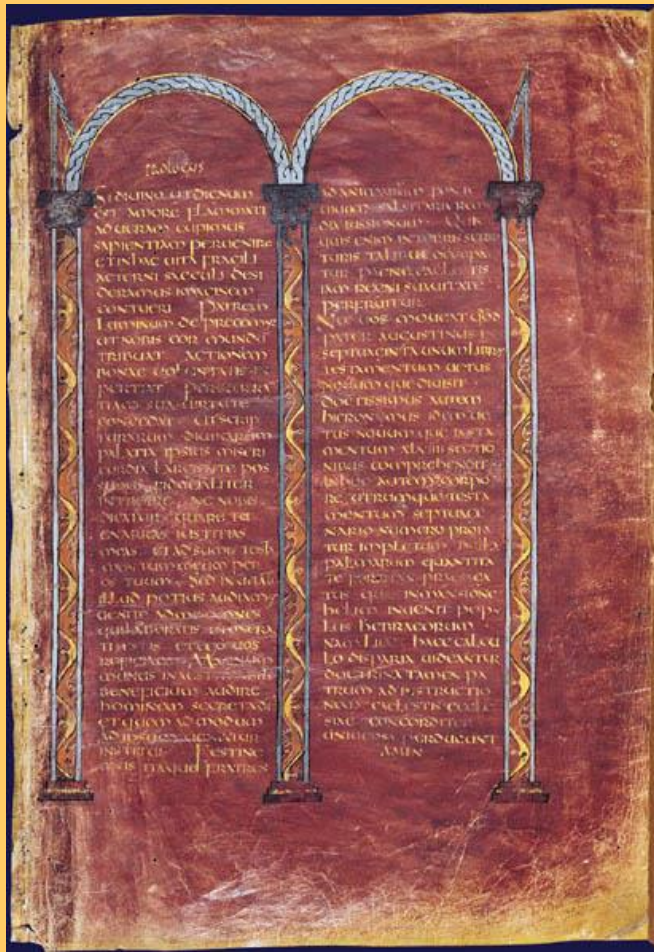 PROLOGUS
SI DIUINO UT DIGNUM
EST AMORE FLAMMATI
AD UERAM CUPIMUS
SAPIENTIAM PERUENIRE
ET IN HAC UITA FRAGILI
AETERNI SAECULI DESI
DERAMUS IMAGINEM
CONTUERI PATREM
LUMINUM DEPRECEMUR
UT NOBIS COR MUNDU
TRIBUAT ACTIONEM
BONAE UOLUNTATIS IN
PERTIAT PERSEUERAN
TIAM SUA UIRTUTE
CONCEDAT UT SCRIP
TURARUM DIUINARUM
PALATIA IPSIUS MISERI
CORDIA LARGIENTE POS
SIMUS FIDUCIALITER
INTROIRE NE NOBIS
DICATUR QUARE TU
ENARRAS IUSTITIAS
MEAS ET ADSUMIS TESTA
MENTUM MEUM PER
OS TUUM SED INUITATI
ILLUD POTIUS AUDIAMUS
UENITE AD ME OMNES
QUI LABORATIS ET ONERA
TI ESTIS ET EGO UOS
REFICIAM MAGNUM
MUNUS INAESTIMABILE
BENEFICIUM AUDIRE
HOMINEM SECRETA DI
ET QUEM AD MODUM
AD IPSUM UENIATUR
INSTITUI FESTINE
MUS ITAQUE FRATRES
AD ANIMARUM FONTEM
UIUUM SALUTARIA REME
DIA IUSSIONUM QUIS
QUIS ENIM IN TERRIS SCRIP
TURIS TALIBUS OCCUPA
TUR PAENE CAELESTIS
IAM REGNI SUAUITATE
PERFRUITUR
NEC UOS MOUEAT QUOD
PATER AUGUSTINUS IN
SEPTUAGINTA UNUM LIBROS
TESTAMENTUM UETUS
NOUUMQUE DIUISIT
DOCTISSIMUS AUTEM
HIERONYMUS IDEM UE
TUS NOUUMQUE TESTA
MENTUM XLVIIII SECTIO
NIBUS COMPREHENDIT
IN HOC AUTEM CORPO
RE UTRUMQUE TESTA
MENTUM SEPTUAGE
NARIO NUMERO PROBA
TUR IMPLETUM IN ILLA
PALMARUM QUANTITA
TE FORSITAN PRAESAGA
TUS QUAS IN MANSIONE
HELIM INUENIT POPU
LUS HEBRAEORUM
NAM LICET HAEC CALCU
LO DISPARIA UIDEANTUR
DOCTRINA TAMEN PA
TRUM AD INSTRUCTIO
NEM CAELESTIS ECCLE
SIAE CONCORDITER
UNIUERSA PERDUCUNT
AMEN